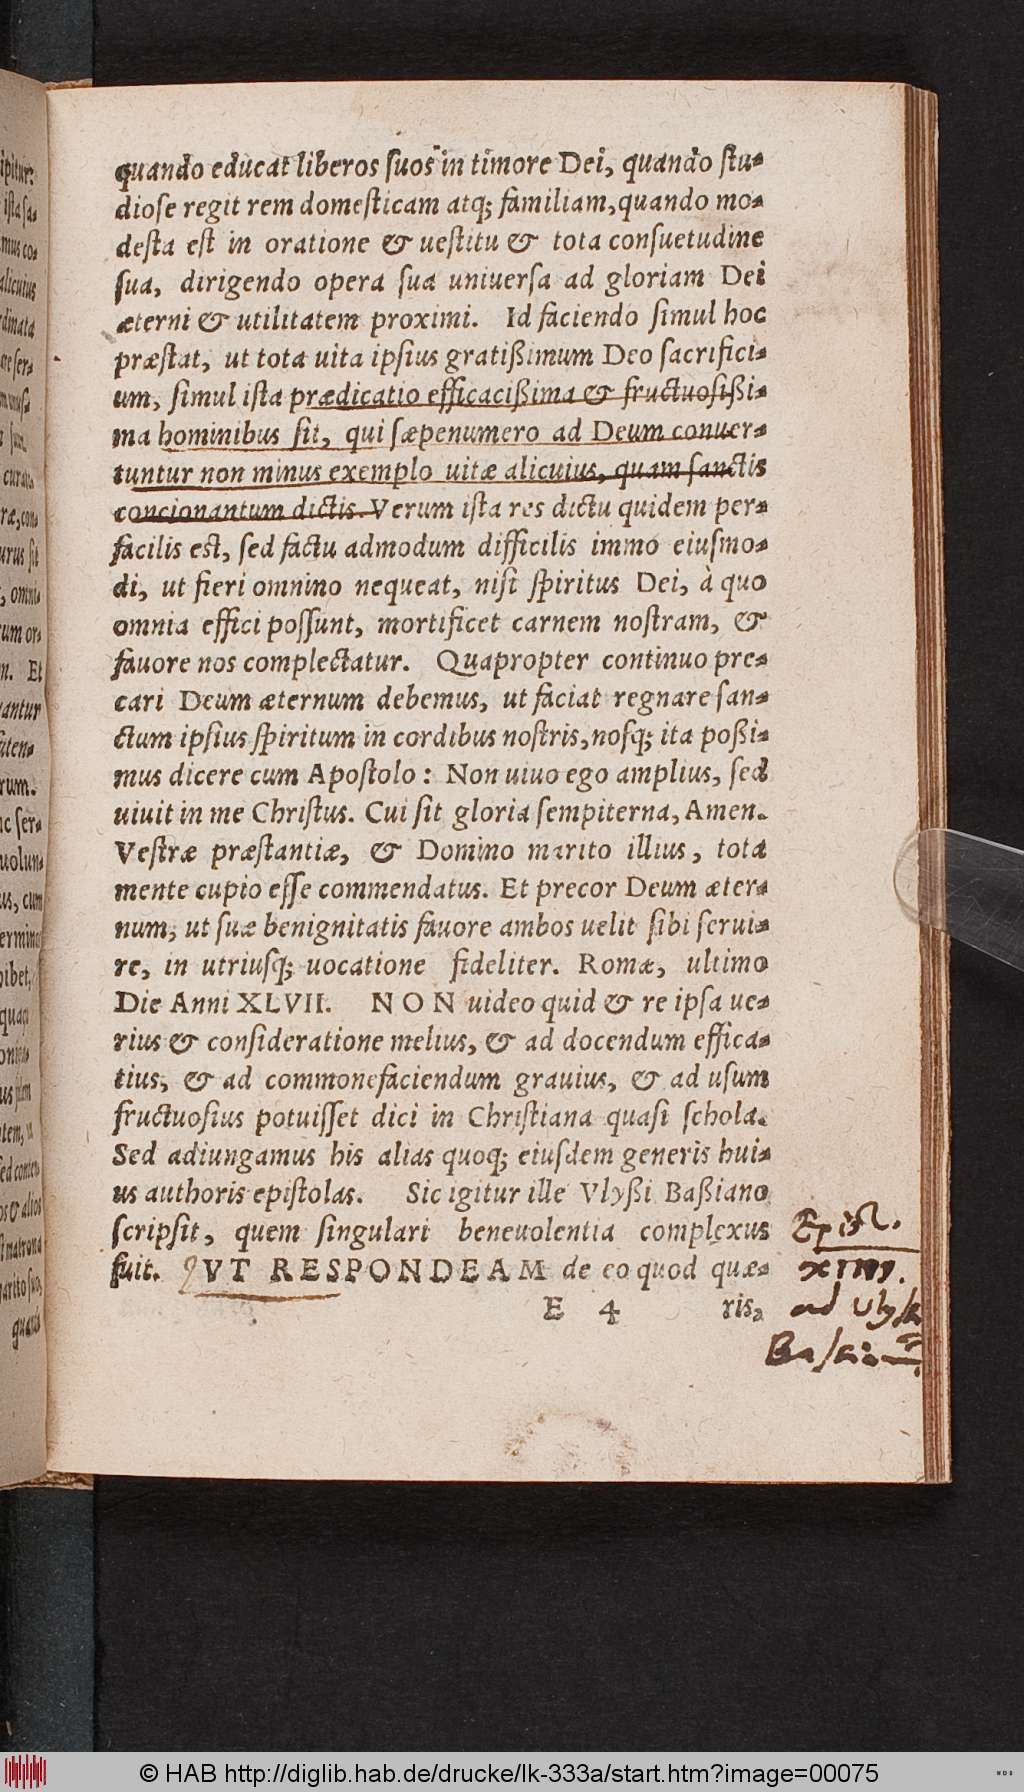 quando educat liberos suos in timore Dei, quando stu-
diose regit rem domesticam atq; familiam, quando mo-
desta est in oratione & uestitu & tota consuetudine
sua, dirigendo opera sua uniuersa ad gloriam Dei
æterni & utilitatem proximi. Id faciendo simul hoc
præstat, ut tota uita ipsius gratißimum Deo sacrifici-
um, simul ista prædicatio efficacißima & fructuosißi-
ma hominibus sit, qui sæpenumero ad Deum conuer-
tuntur non minus exemplo uitæ alicuius, quam sanctis
concionantum dictis. Verum ista res dictu quidem per-
facilis est, sed factu admodum difficilis immo eiusmo-
di, ut fieri omnino nequeat, nisi spiritus Dei, à quo
omnia effici possunt, mortificet carnem nostram, &
fauore nos complectatur. Quapropter continuo pre-
cari Deum æternum debemus, ut faciat regnare san-
ctum ipsius spiritum in cordibus nostris, nosq; ita poßi-
mus dicere cum Apostolo: Non uiuo ego amplius, sed
uiuit in me Christus. Cui sit gloria sempiterna, Amen.
Vestræ præstantiæ, & Domino marito illius, tota
mente cupio esse commendatus. Et precor Deum æter-
num, ut suæ benignitatis fauore ambos uelit sibi serui-
re, in utriusq; uocatione fideliter. Romæ, ultimo
Die Anni XLVII. NON uideo quid & re ipsa ue-
rius & consideratione melius, & ad docendum effica-
tius, & ad commonefaciendum grauius, & ad usum
fructuosius potuisset dici in Christiana quasi schola.
Sed adiungamus his alias quoq; eiusdem generis hui-
us authoris epistolas. Sic igitur ille Vlyßi Baßiano
scripsit, quem singulari beneuolentia complexus
fuit. VT RESPONDEAM de eo quod quæ-
E 4 ris,
Epist.
XIIII.
ad Ulyss
© HAB http://diglib.hab.de/drucke/lk-333a/start.htm?image=00075